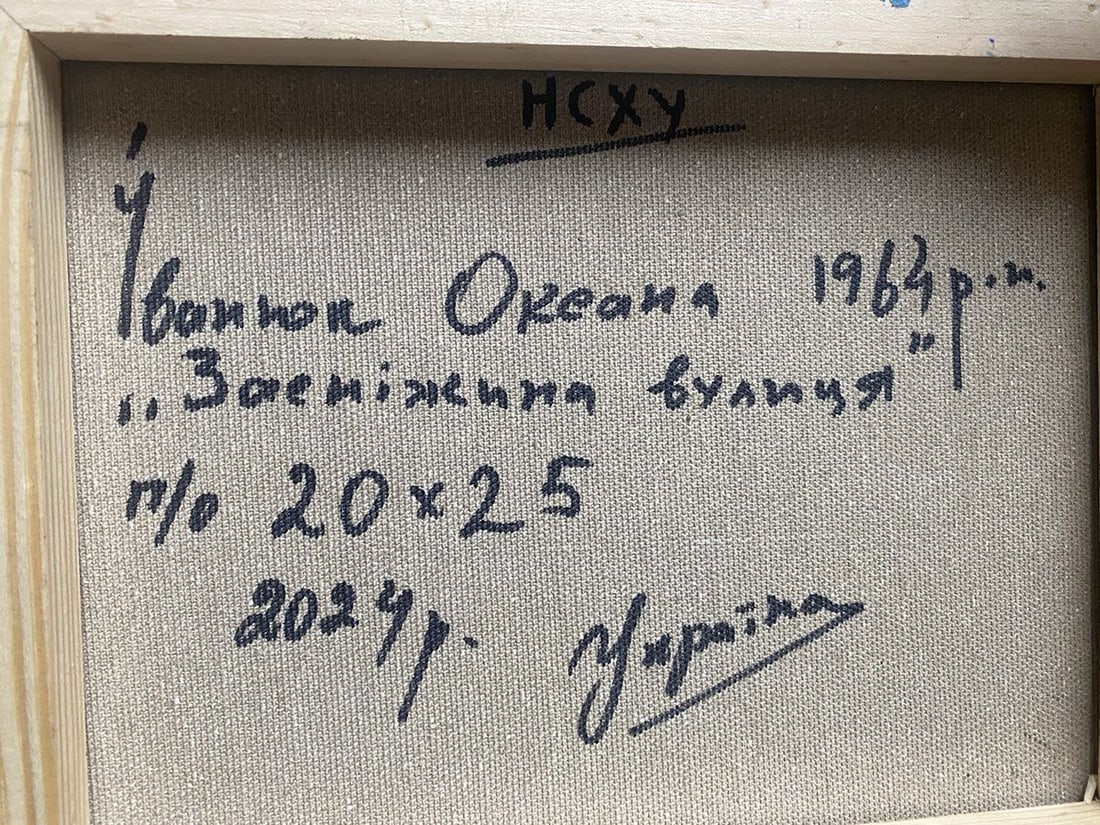 НСХУ
Іванюк Оксана 1964 р.н.
„Засніжена вулиця"
п/о 20х25
2024р.
Україна